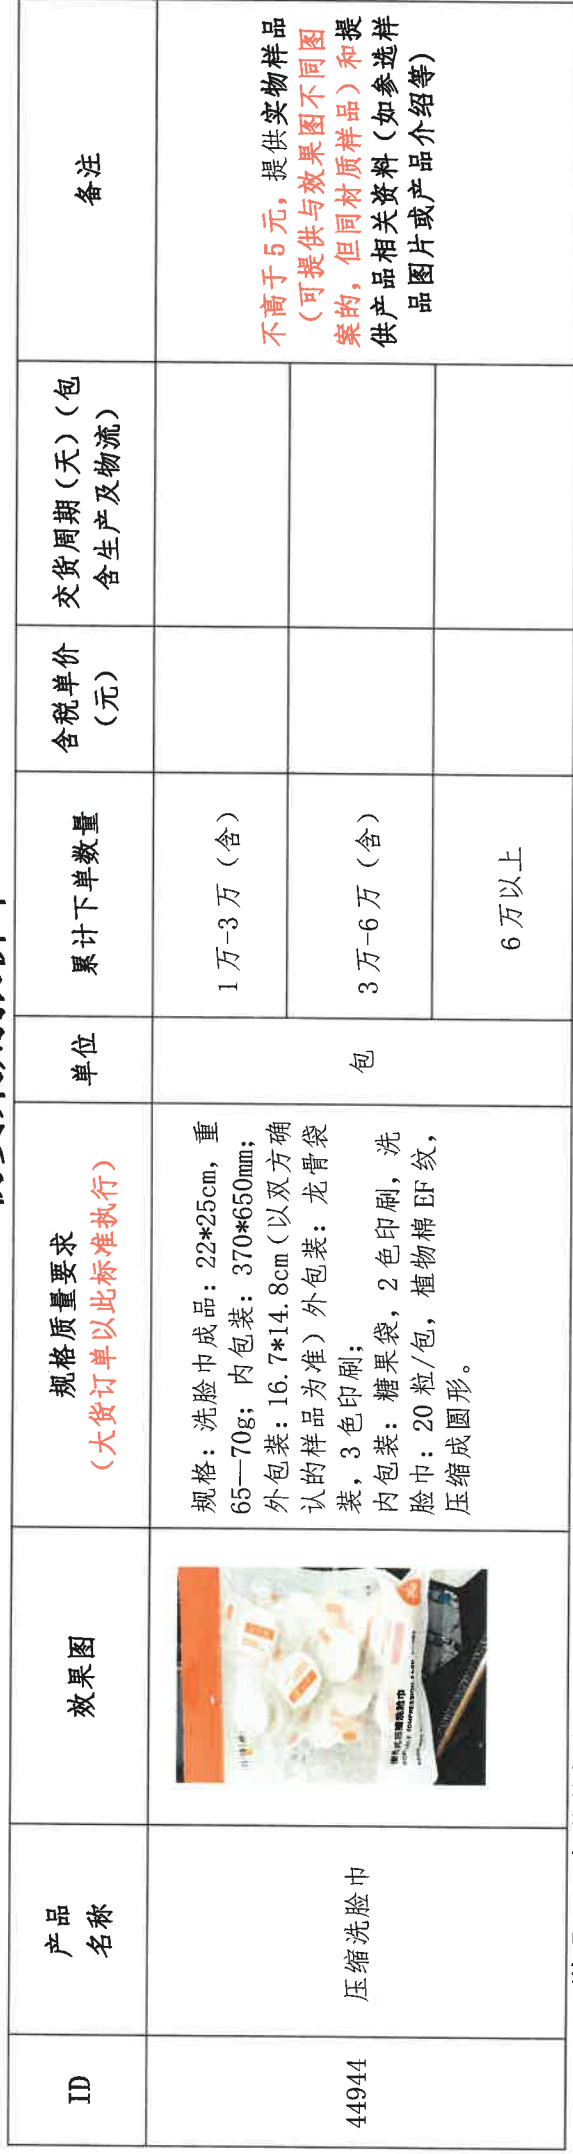 ID
产品
名称
效果图
规格质量要求
（大货订单以此标准执行）
单位
累计下单数量
含税单价
（元）
交货周期（天）（包
含生产及物流）
备注
44944
压缩洗脸巾
压缩洗脸巾
规格：洗脸巾成品：22*25cm，重
65—70g；内包装：370*650mm；
外包装：16.7*14.8cm（以双方确
认的样品为准）外包装：龙骨袋
装，3 色印刷；
内包装：糖果袋，2 色印刷，洗
脸巾：20 粒/包，植物棉 EF 纹，
压缩成圆形。
包
1 万-3 万（含）
3 万-6 万（含）
6 万以上
不高于 5 元，提供实物样品
（可提供与效果图不同图
案的，但同材质样品）和提
供产品相关资料（如参选样
品图片或产品介绍等）